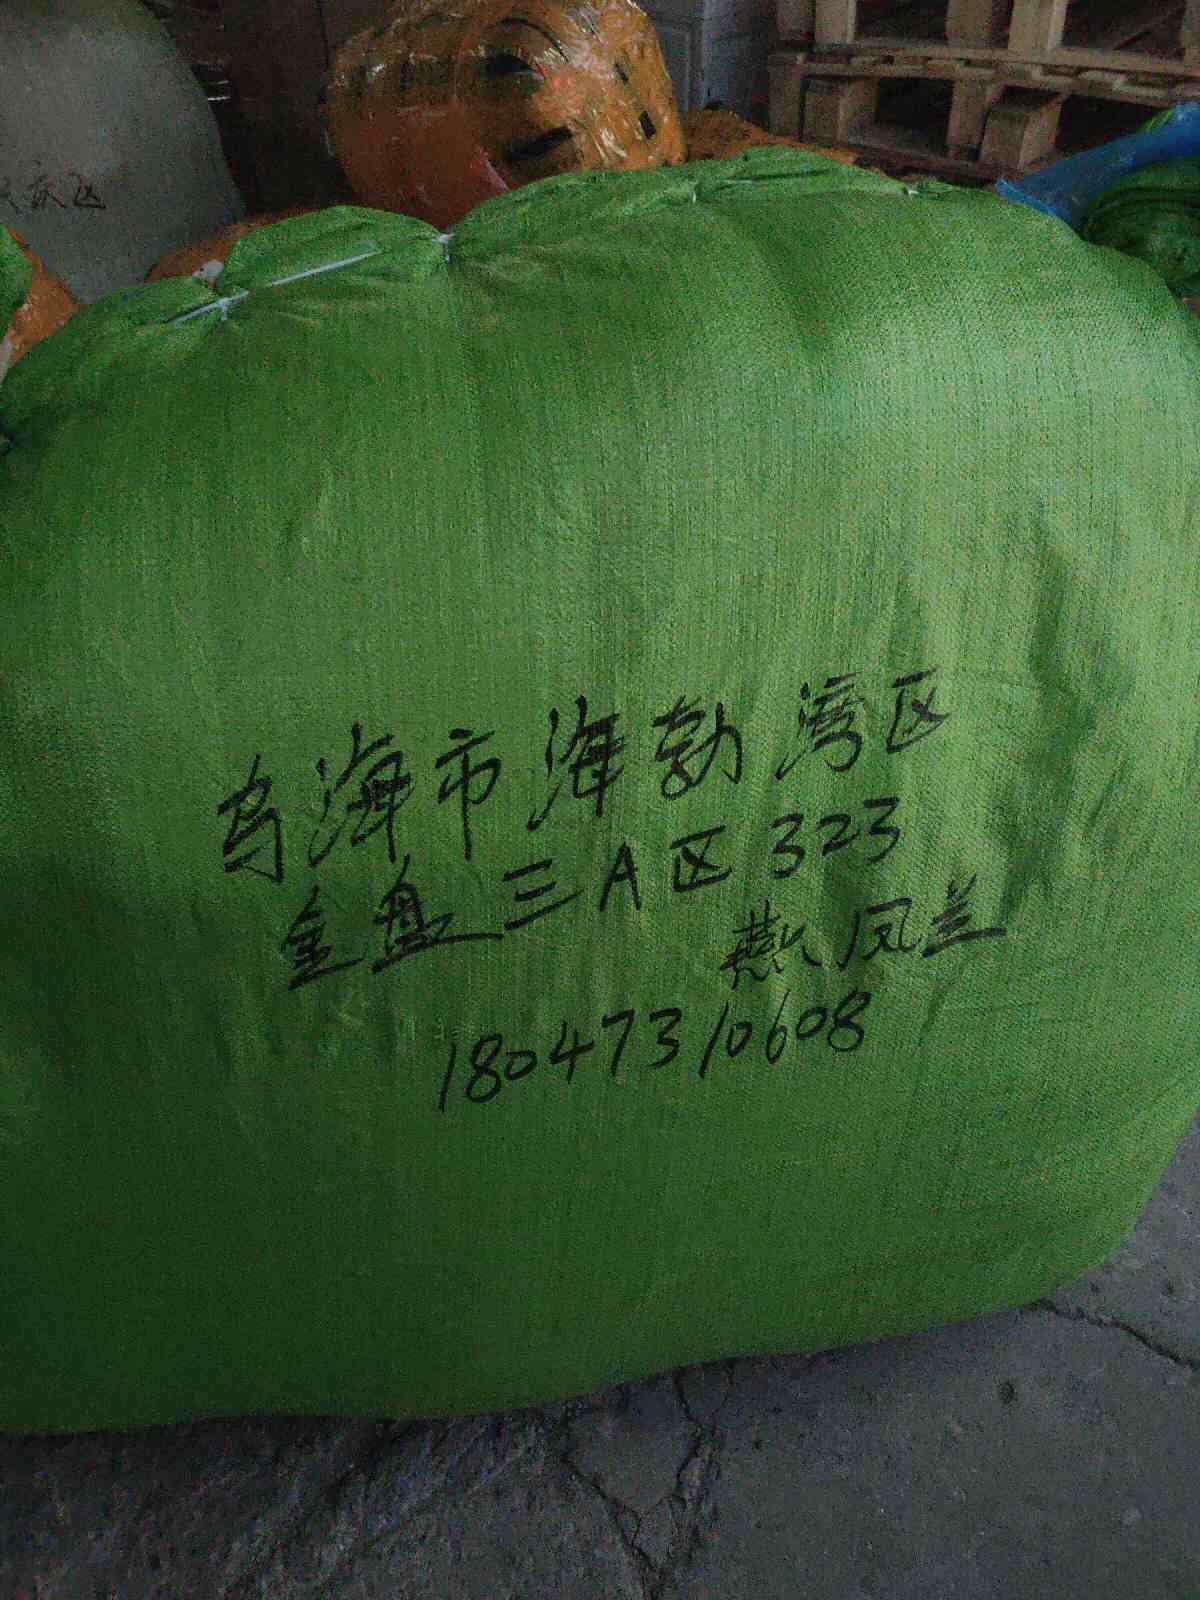 乌海市海勃湾区
金盘三A区323
燕凤兰
18047310608